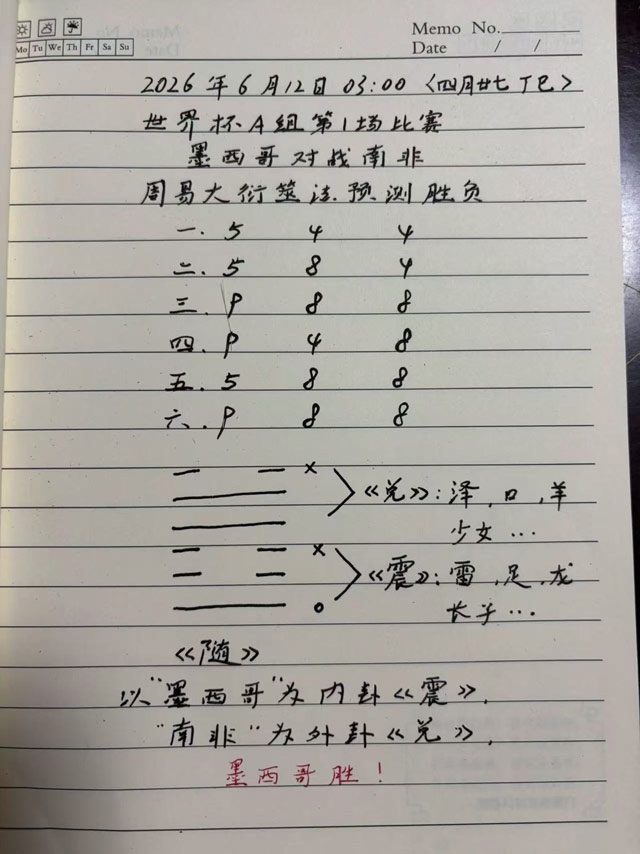 Memo No.
Mo Tu We Th Fr Sa Su
Date / /
2026年6月12日 03:00 〈四月廿七 丁巳〉
世界杯A组第1场比赛
墨西哥对战南非
周易大衍筮法预测胜负
一. 5 4 4
二. 5 8 4
三. 9 8 8
四. 9 4 8
五. 5 8 8
六. 9 8 8
×
《兑》: 泽, 口, 羊
少女 ...
×
《震》: 雷, 足, 龙
长子 ...
o
《随》
以"墨西哥"为内卦《震》,
"南非"为外卦《兑》,
墨西哥胜!